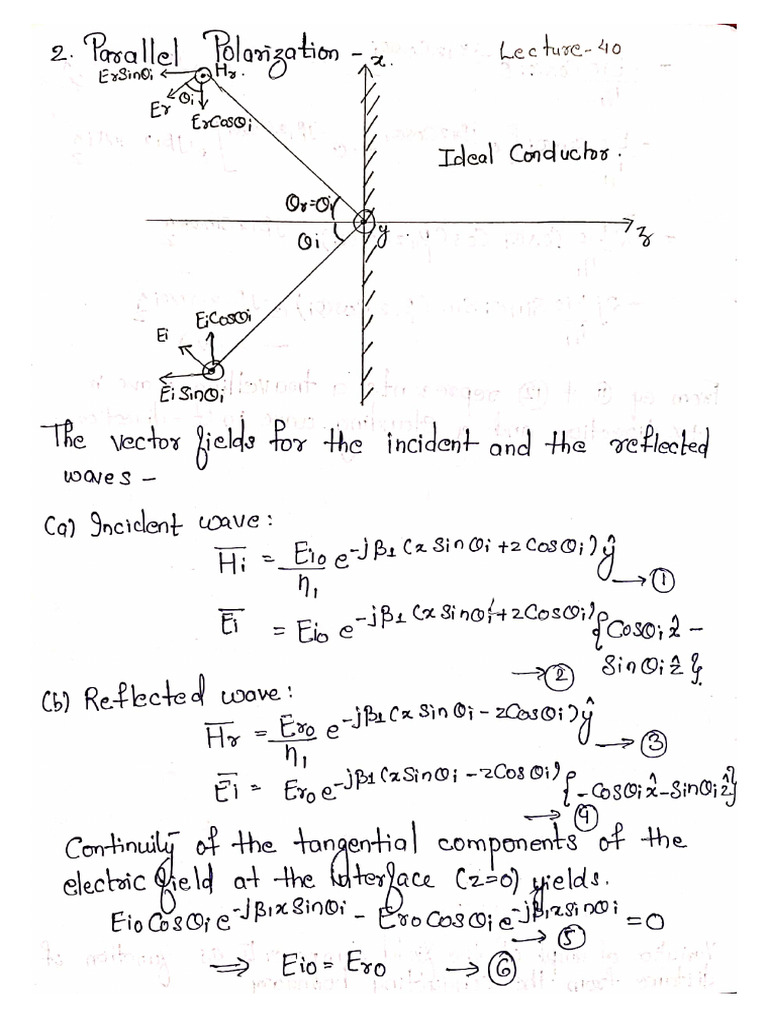 2. Parallel Polarization - x. Lecture-40
ErSinθi Hr.
Er θi
ErCosθi
Ideal Conductor.
θr=θi
y z
θi
EiCosθi
Ei
Ei Sinθi
The vector fields for the incident and the reflected
waves -
(a) Incident wave:
H̅i = Eio/η1 e^-jβ1(x Sinθi + z Cosθi) ŷ → ①
E̅i = Eio e^-jβ1(x Sinθi + z Cosθi) {Cosθi x̂ -
Sinθi ẑ}. → ②
(b) Reflected wave:
H̅r = Ero/η1 e^-jβ1(x Sinθi - z Cosθi) ŷ → ③
E̅i = Ero e^-jβ1(x Sinθi - z Cosθi) {-Cosθi x̂ - Sinθi ẑ}
→ ④
Continuity of the tangential components of the
electric field at the interface (z=0) yields.
Eio Cosθi e^-jβ1x Sinθi - Ero Cosθi e^-jβ1x sinθi = 0
→ ⑤
⟹ Eio = Ero → ⑥